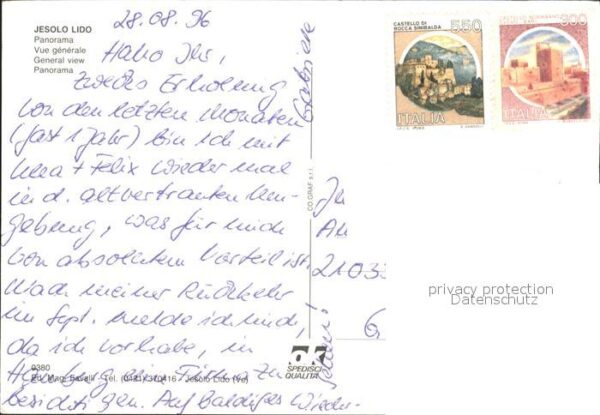 JESOLO LIDO
Panorama
Vue générale
General view
Panorama
28.08.96
Hallo Ihr,
zwecks Erholung
von den letzten Monaten
(fast 1 Jahr) bin ich mit
+ Felix wieder mal
in d. altvertrauten Um-
gebung, was für mich
von absolutem Vorteil ist.
Nach meiner Rückkehr
im Sept. melde ich mich,
da ich vorhabe, in
Hamburg zu
besichtigen. Auf baldiges Wieder-
sehen!
Gabriele
0380
Jesolo Lido (Ve)
CO.GRAF s.r.l.
ok
SPEDISCI
QUALITÀ
CASTELLO DI
ROCCA SINIBALDA
550
ITALIA
300
ITALIA
21035
privacy protection
Datenschutz